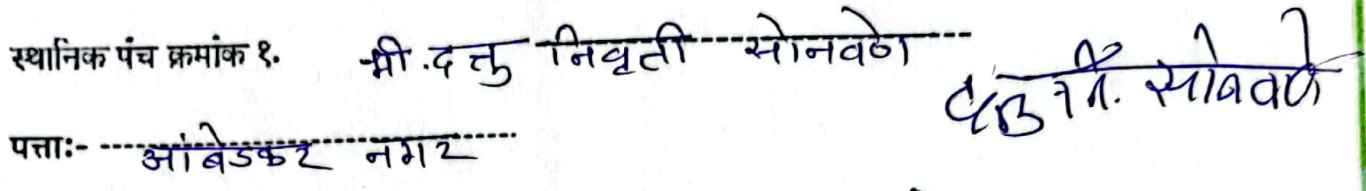 स्थानिक पंच क्रमांक १. श्री. दत्तु निवृती सोनवणे
दत्तु नि. सोनवणे
पत्ताः- आंबेडकर नगर